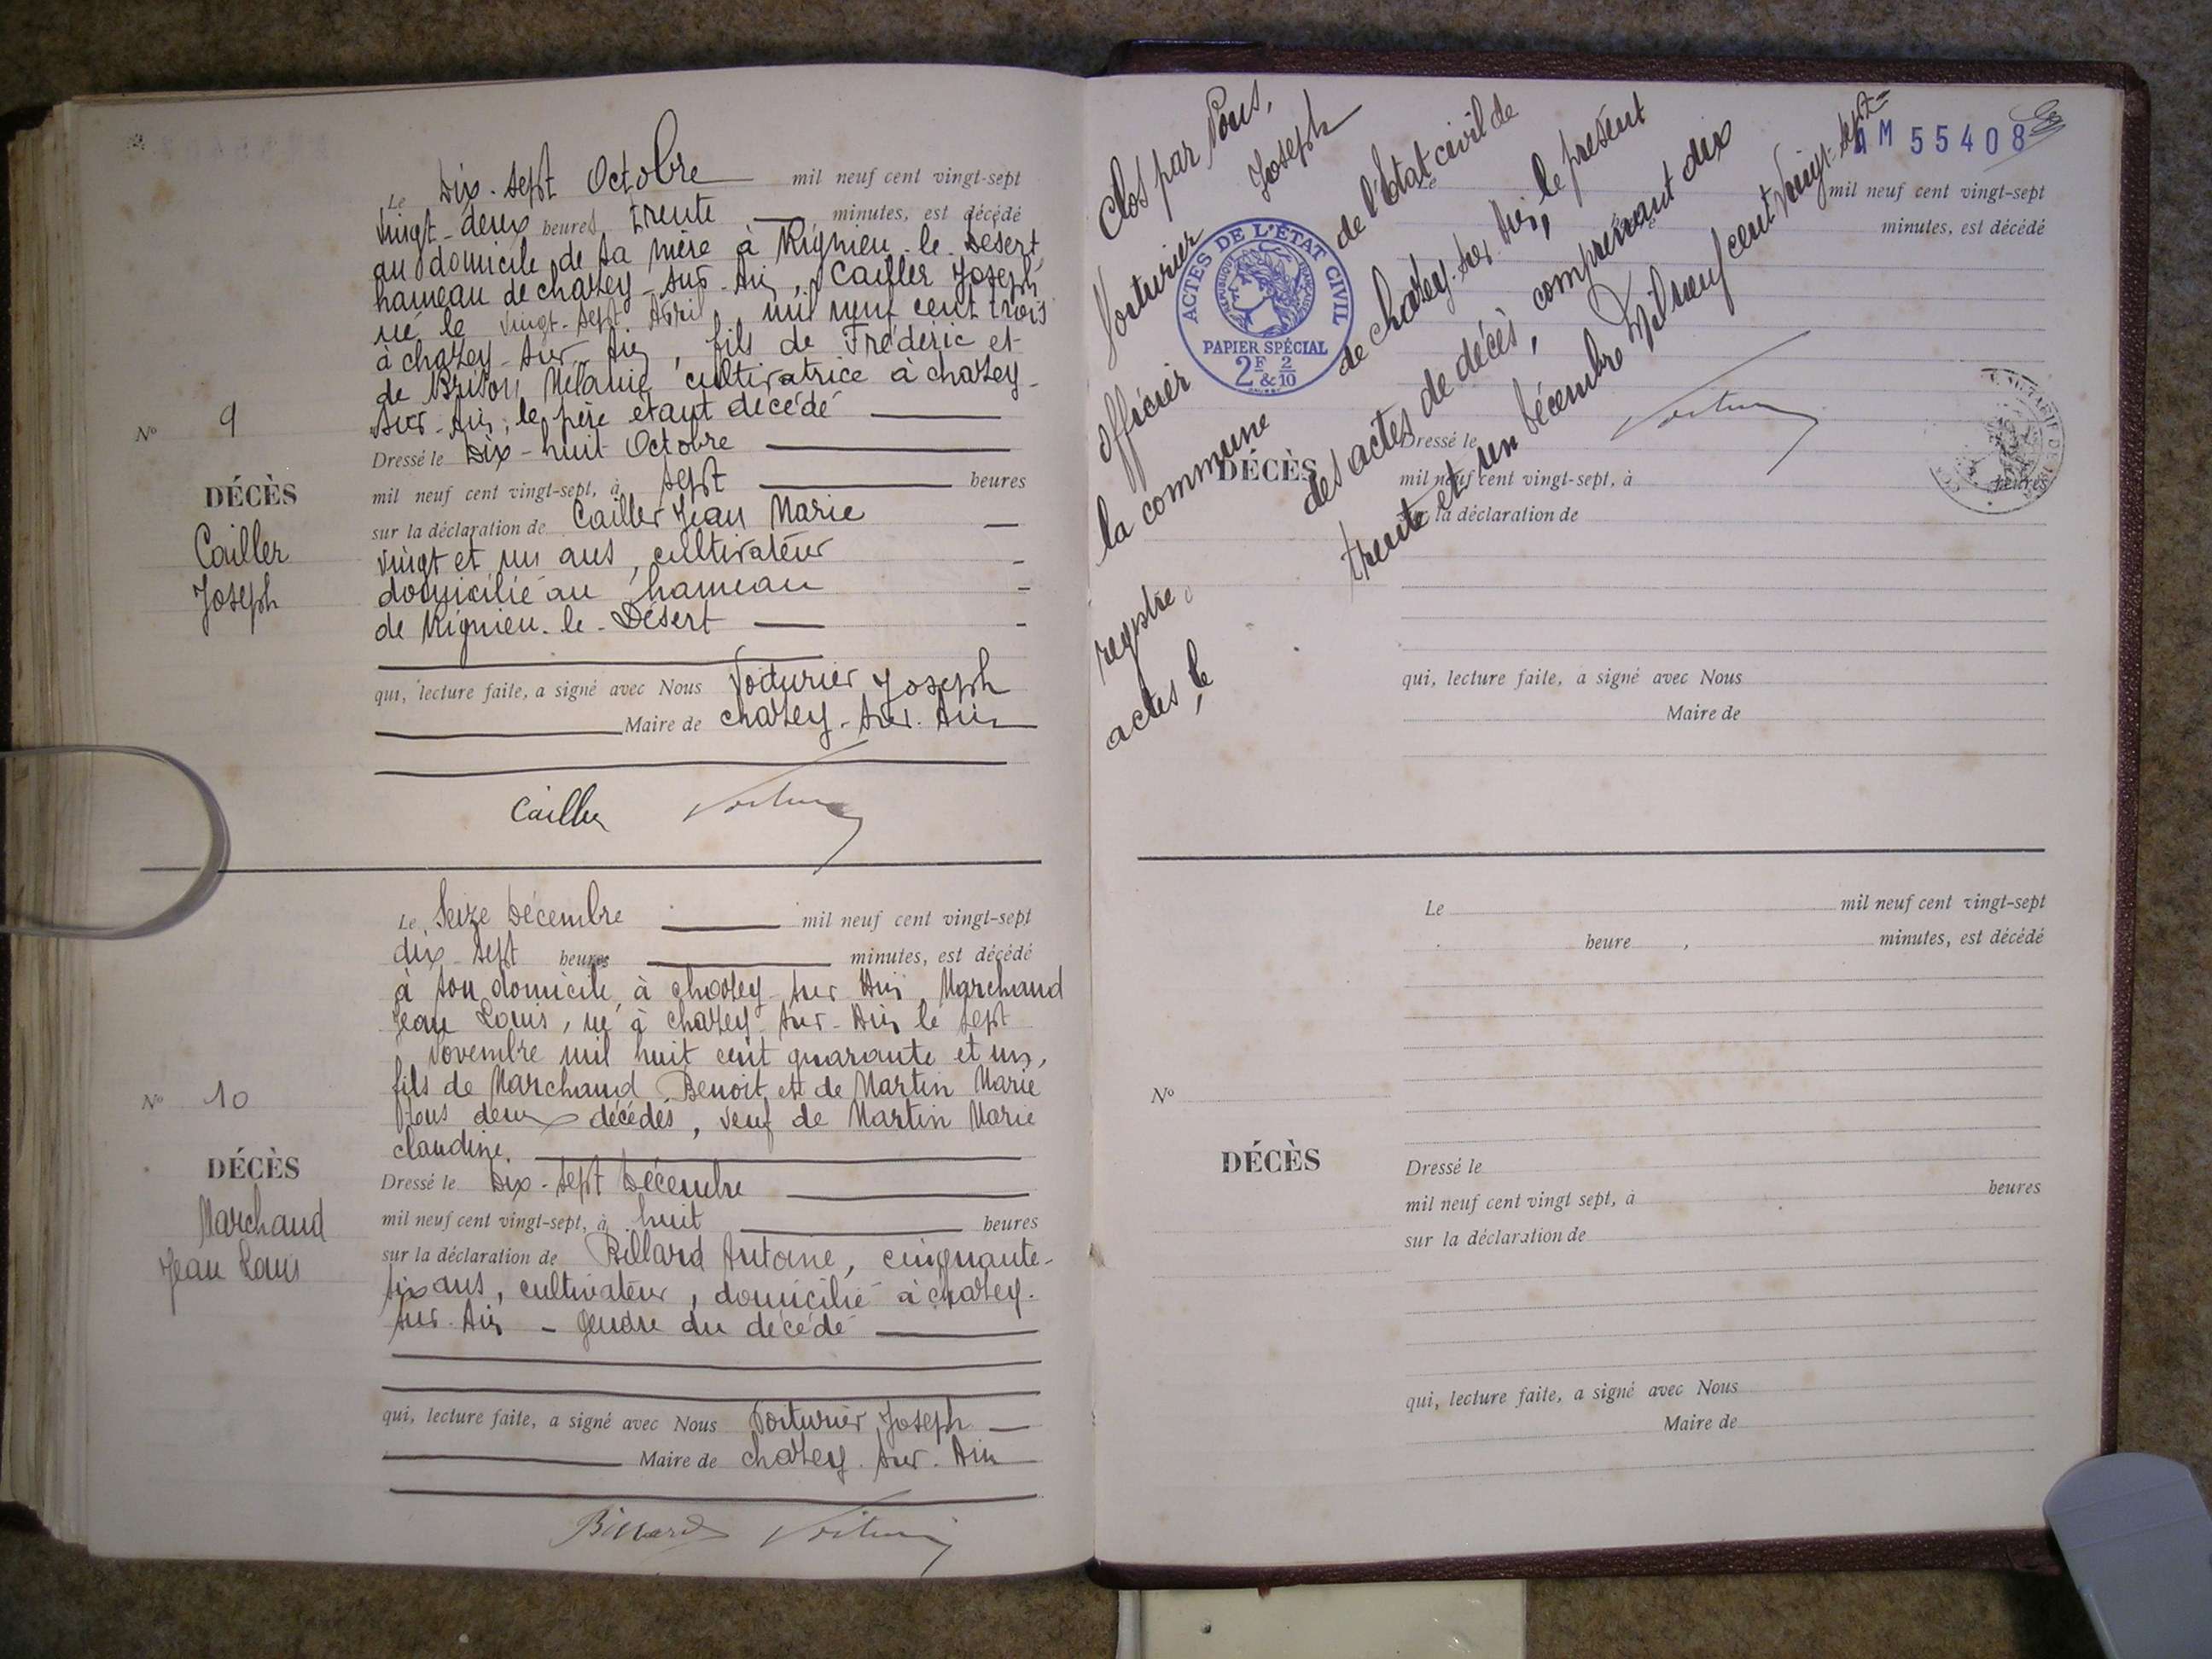 Le Dix-sept Octobre mil neuf cent vingt-sept
vingt-deux heures trente minutes, est décédé
au domicile de sa mère à Rignieu-le-Désert,
hameau de chazey-sur-Ain, Cailler Joseph
né le vingt-sept Avril mil neuf cent trois
à chazey-sur-Ain, fils de Frédéric et
de Brison Mélanie cultivatrice à chazey-
sur-Ain, le père étant décédé
N° 9
Dressé le Dix-huit Octobre
DÉCÈS
mil neuf cent vingt-sept, à sept heures
Cailler
Joseph
sur la déclaration de Cailler Jean Marie
vingt et un ans, cultivateur
domicilié au hameau
de Rignieu-le-Désert
qui, lecture faite, a signé avec Nous Voiturier Joseph
Maire de chazey-sur-Ain
Cailler Voiturier
Le Seize Décembre mil neuf cent vingt-sept
dix-sept heures minutes, est décédé
à son domicile, à chazey-sur-Ain, Marchand
Jean Louis, né à chazey-sur-Ain le sept
Novembre mil huit cent quarante et un,
fils de Marchand Benoit et de Martin Marie
tous deux décédés, veuf de Martin Marie
claudine.
N° 10
DÉCÈS
Marchand
Jean Louis
Dressé le Dix-sept Décembre
mil neuf cent vingt-sept, à huit heures
sur la déclaration de Billard Antoine, cinquante-
six ans, cultivateur, domicilié à chazey-
sur-Ain - gendre du décédé
qui, lecture faite, a signé avec Nous Voiturier Joseph
Maire de chazey-sur-Ain
Billard Voiturier
4M 55408
Clos par Nous,
Voiturier Joseph
officier de l'Etat civil de
la commune de chazey-sur-Ain, le présent
registre des actes de décès, comprenant dix
actes, le trente et un Décembre Mil neuf cent Vingt-sept
Voiturier
ACTES DE L'ÉTAT CIVIL
RÉPUBLIQUE FRANÇAISE
PAPIER SPÉCIAL
2F & 2/10
Le mil neuf cent vingt-sept
minutes, est décédé
DÉCÈS
Dressé le
mil neuf cent vingt-sept, à heures
sur la déclaration de
qui, lecture faite, a signé avec Nous
Maire de
Le mil neuf cent vingt-sept
heure , minutes, est décédé
N°
DÉCÈS
Dressé le
mil neuf cent vingt sept, à heures
sur la déclaration de
qui, lecture faite, a signé avec Nous
Maire de